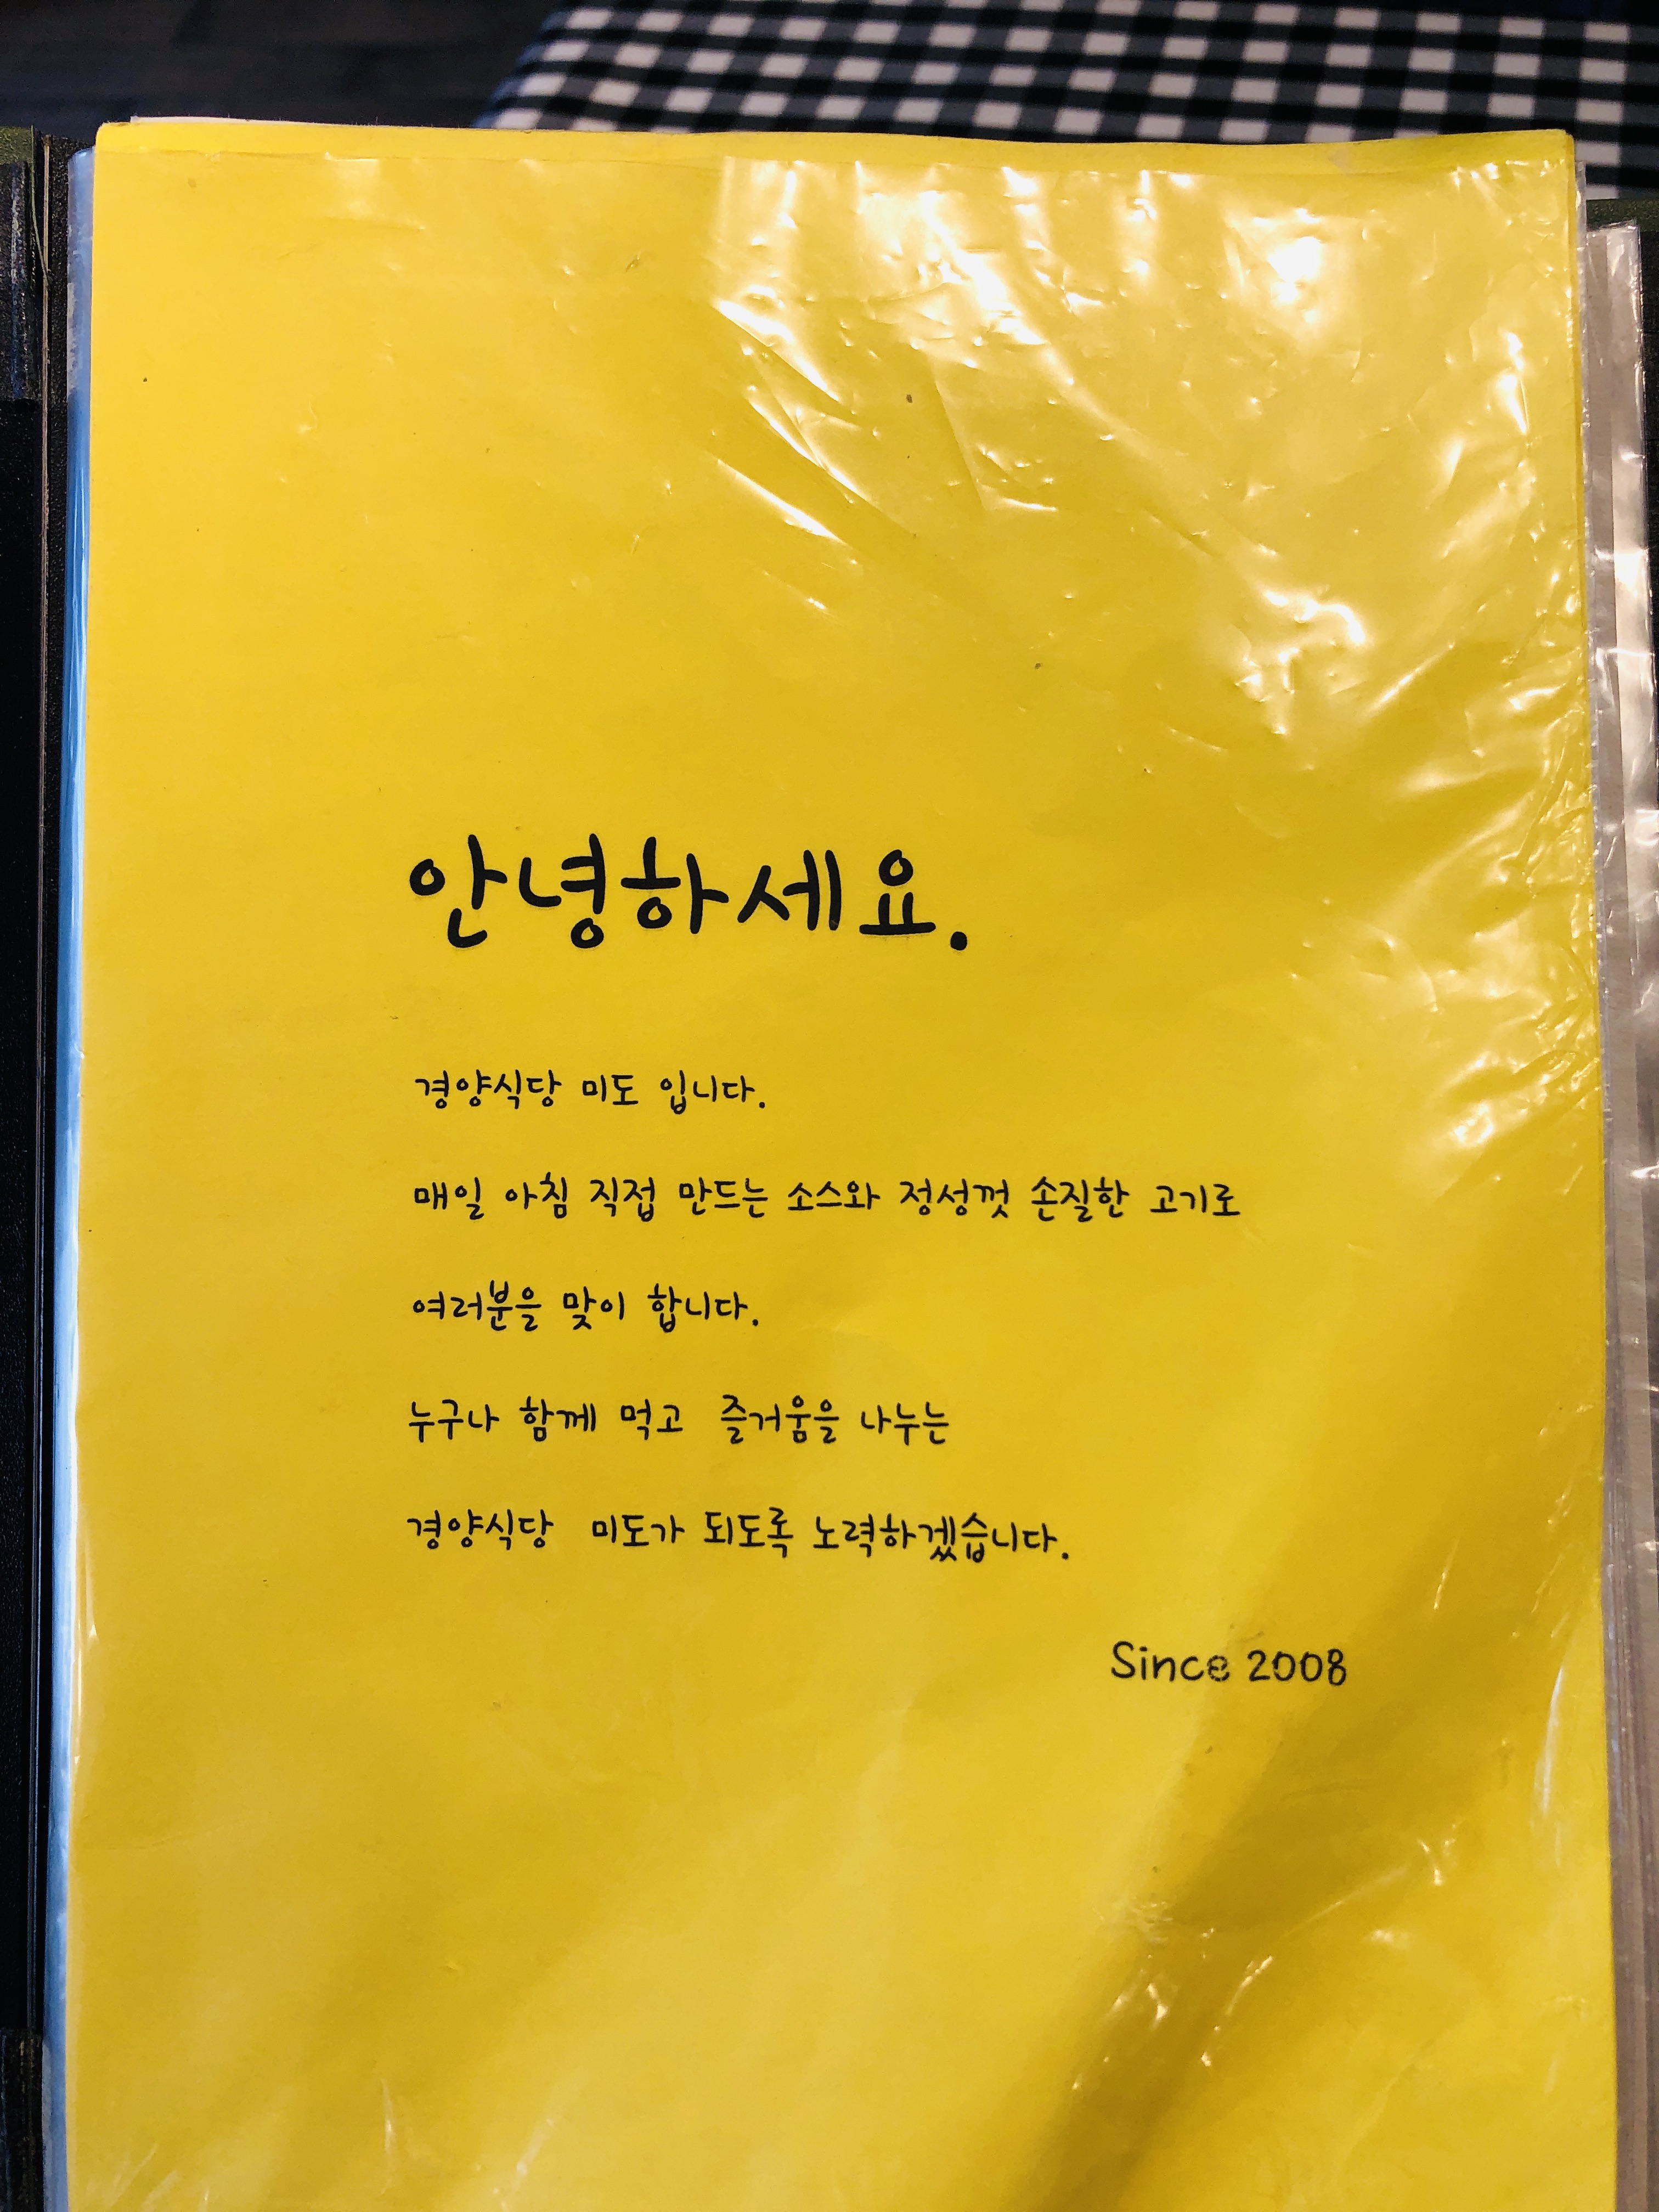 안녕하세요.
경양식당 미도 입니다.
매일 아침 직접 만드는 소스와 정성껏 손질한 고기로
여러분을 맞이 합니다.
누구나 함께 먹고 즐거움을 나누는
경양식당 미도가 되도록 노력하겠습니다.
Since 2008